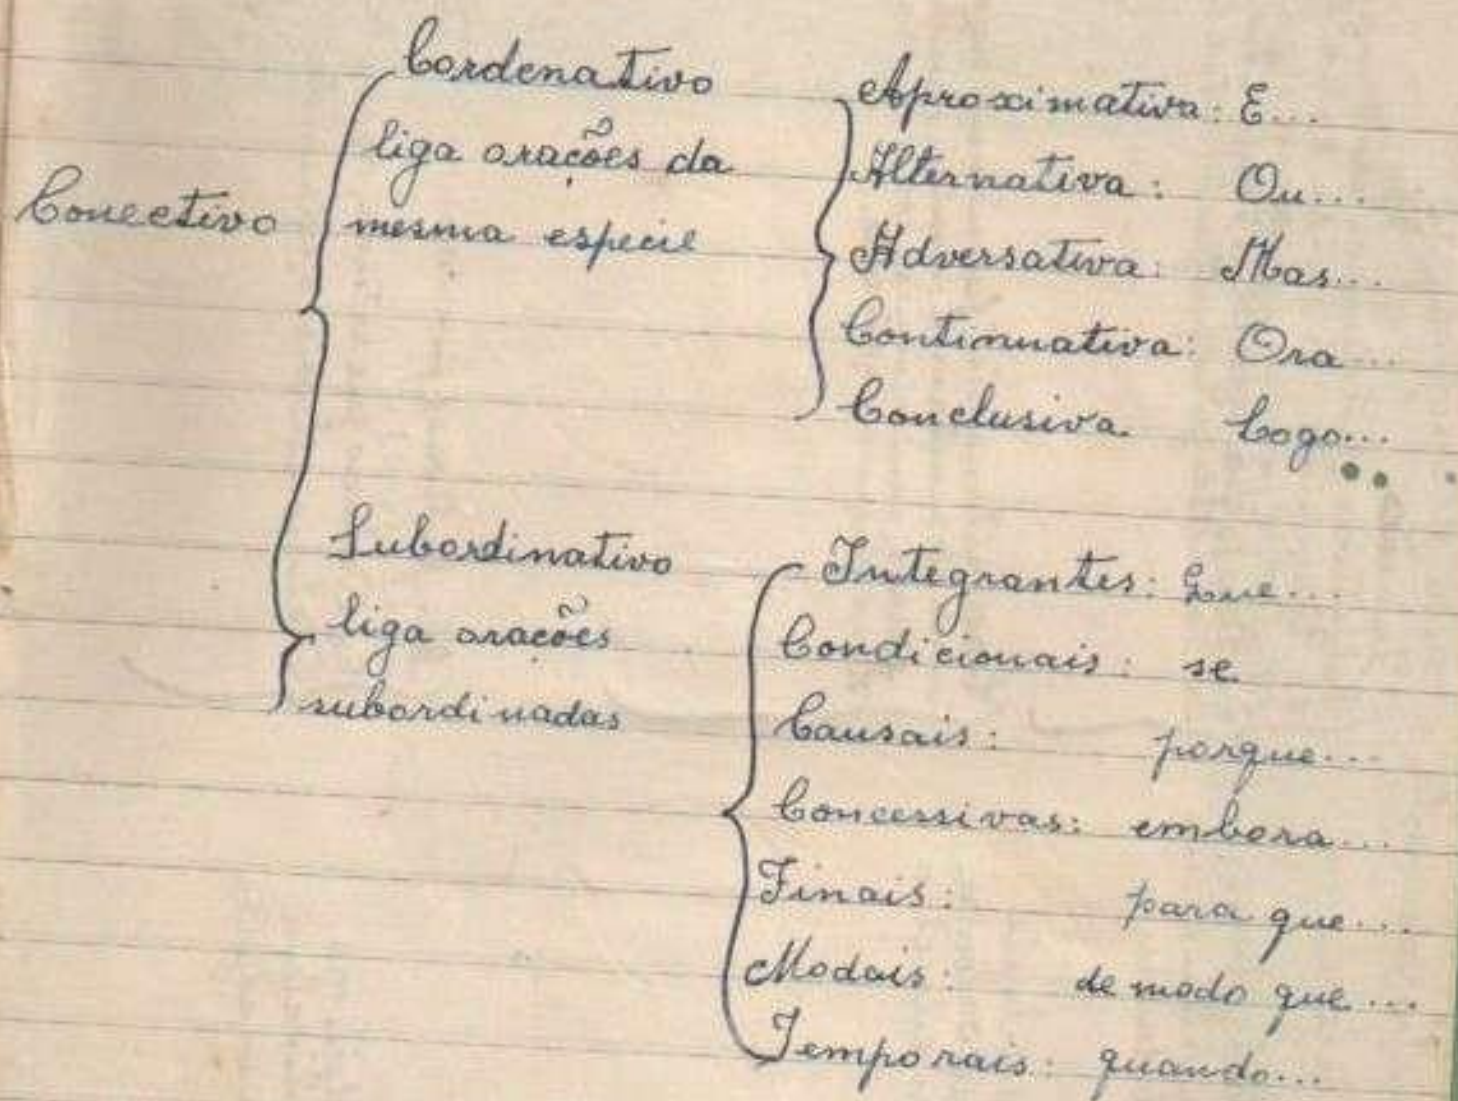 Conectivo
Cordenativo
liga orações da
mesma especie
Aproximativa: E...
Alternativa: Ou...
Adversativa: Mas...
Continuativa: Ora...
Conclusiva Logo...
Subordinativo
liga orações
subordinadas
Integrantes: Que...
Condicionais: se
Causais: porque...
Concessivas: embora...
Finais: para que...
Modais: de modo que...
Temporais: quando...